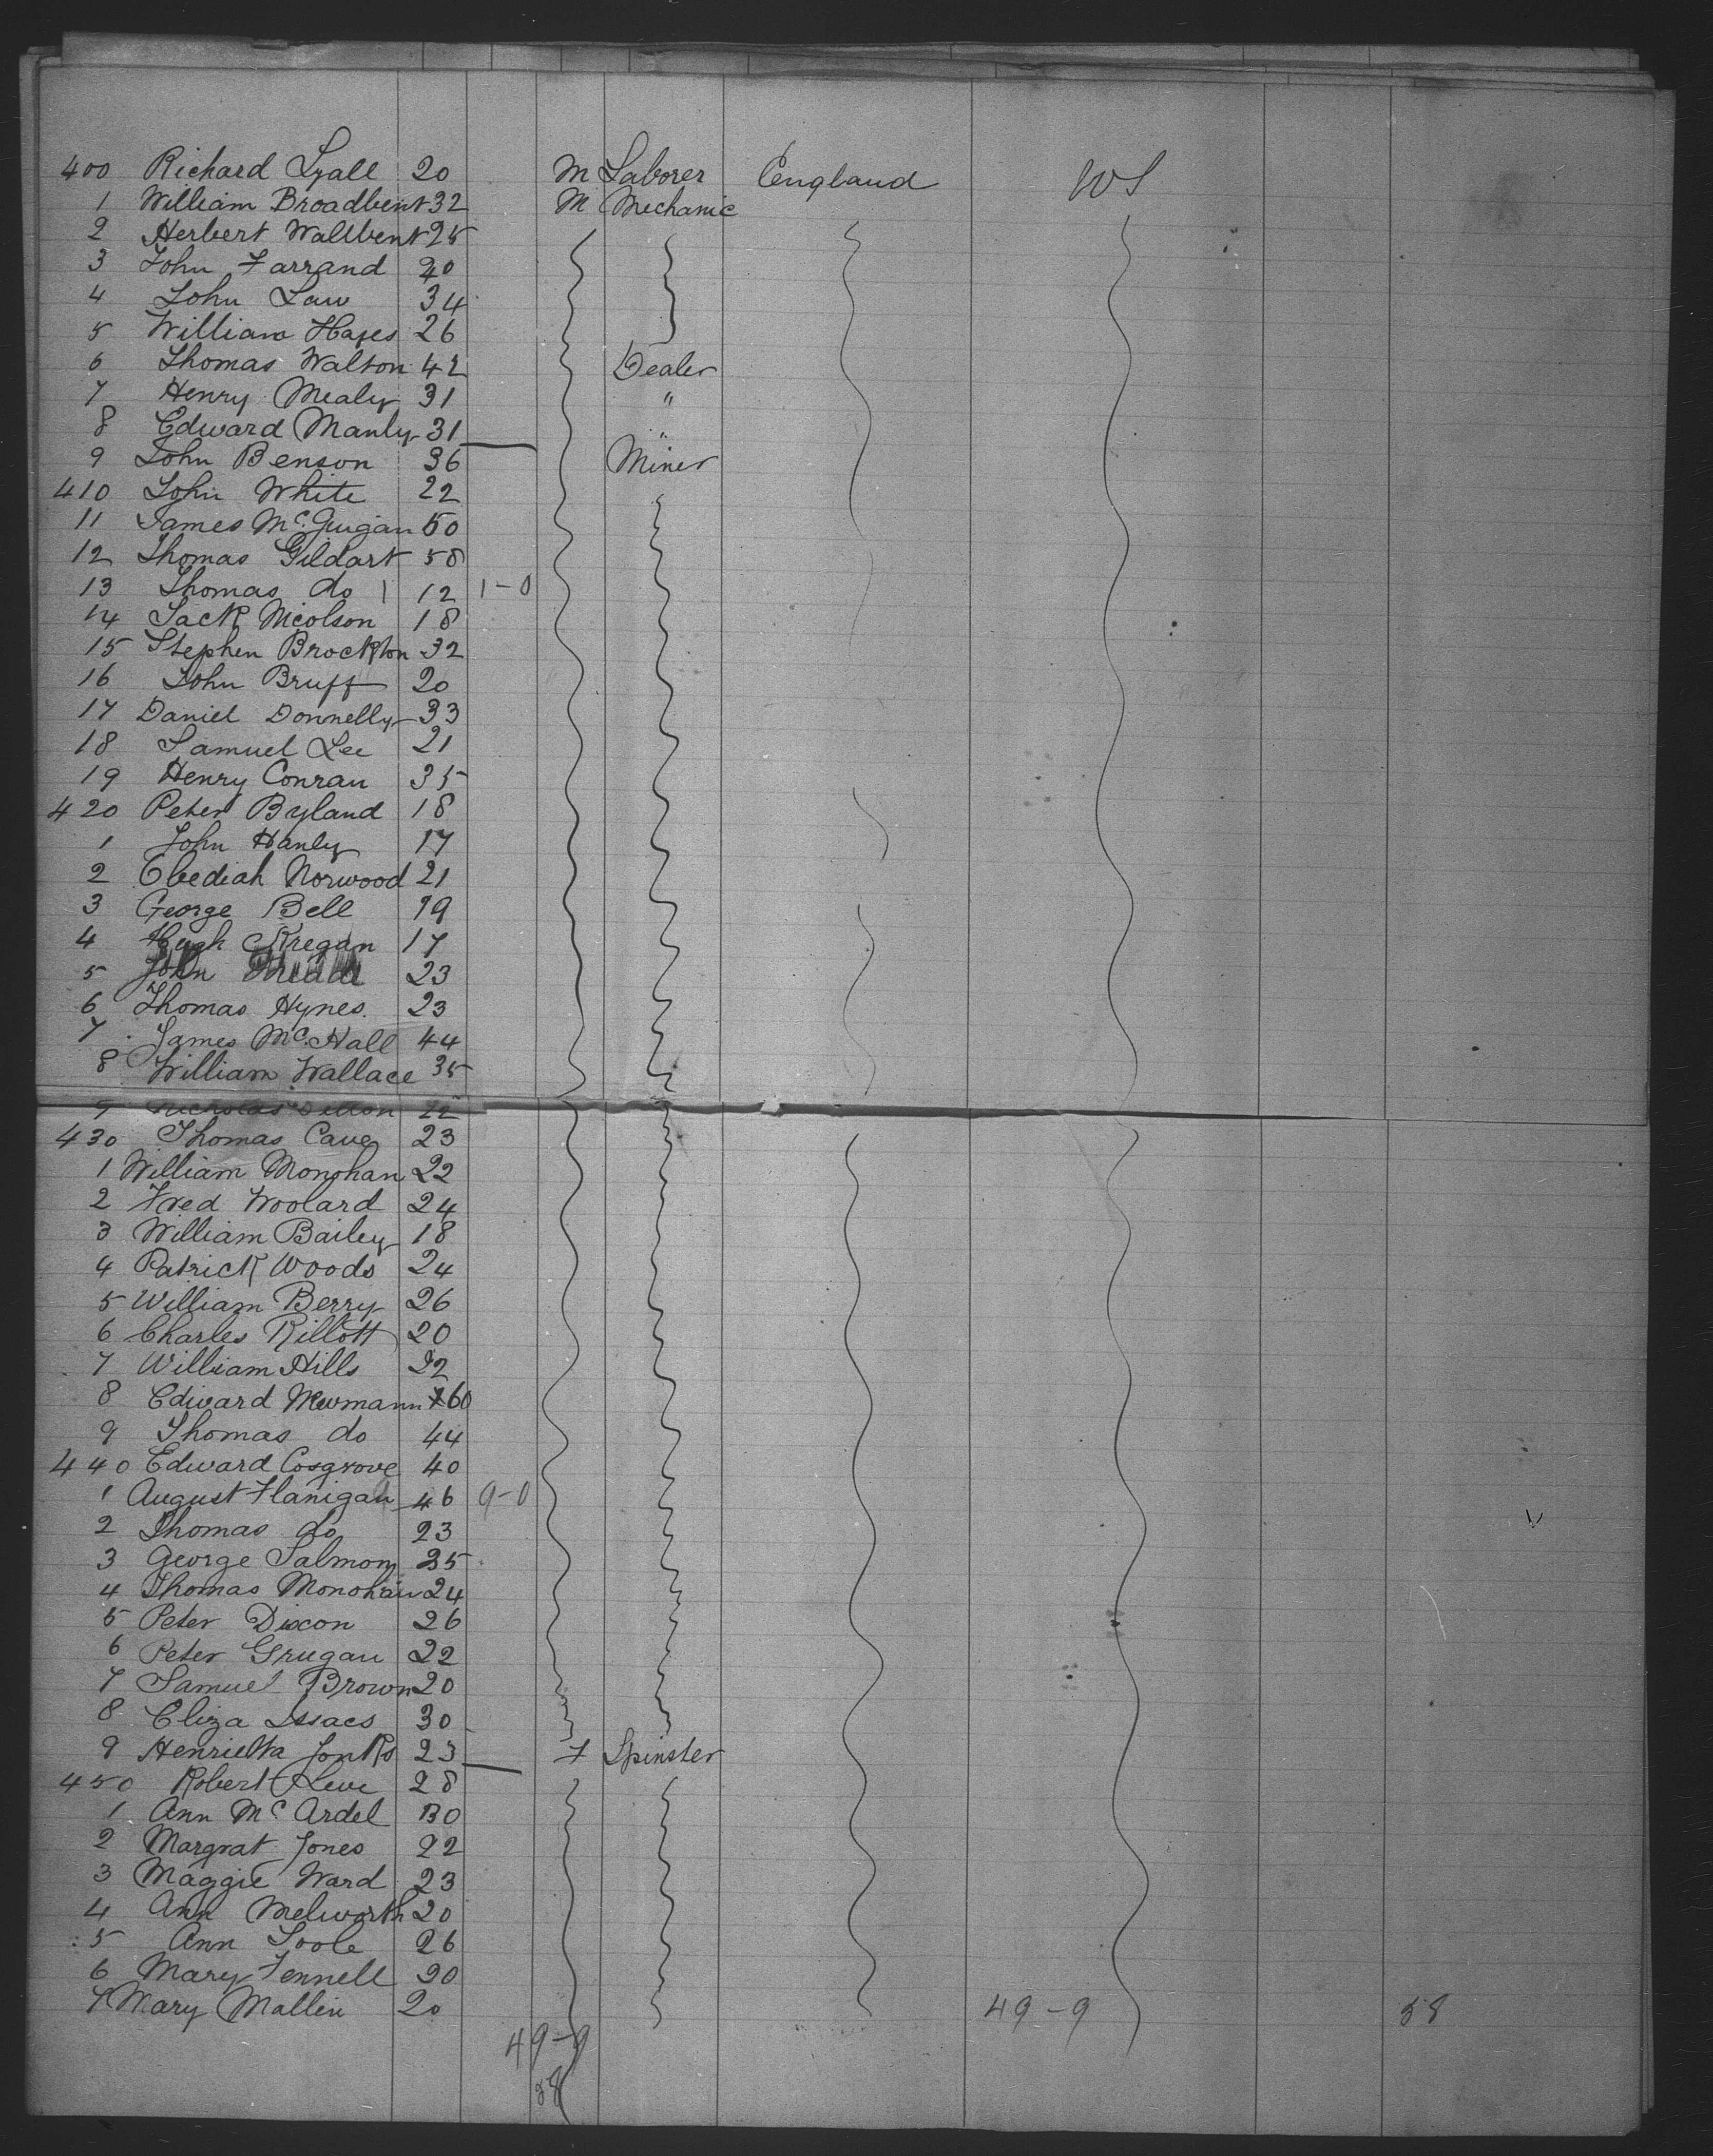 400 Richard Lyall 20 M Laborer England US
1 William Broadbent 32 M Mechanic
2 Herbert Wallbent 25
3 John Farrand 20
4 John Law 34
5 William Hayes 26
6 Thomas Walton 42 Dealer
7 Henry Mealy 31 "
8 Edward Manly 31 "
9 John Benson 36 Miner
410 John White 22
11 James McGuigan 50
12 Thomas Gildart 58
13 Thomas do 12 1-0
14 Jack Nicolson 18
15 Stephen Brockton 32
16 John Bruff 20
17 Daniel Donnelly 33
18 Samuel Lee 21
19 Henry Conran 35
420 Peter Byland 18
1 John Hanly 17
2 Obediah Norwood 21
3 George Bell 19
4 Hugh Kregan 17
5 John 23
6 Thomas Hynes 23
7 James McHall 44
8 William Wallace 35
9 Nicholas Dillon 22
430 Thomas Cave 23
1 William Monohan 22
2 Fred Woolard 24
3 William Bailey 18
4 Patrick Woods 24
5 William Berry 26
6 Charles Rillott 20
7 William Hills 22
8 Edward Newmann 60
9 Thomas do 44
440 Edward Cosgrove 40
1 August Flanigan 46 9-0
2 Thomas do 23
3 George Salmon 25
4 Thomas Monohan 24
5 Peter Dixon 26
6 Peter Grugan 22
7 Samuel Brown 20
8 Eliza Issacs 30
9 Henrietta Jonks 23 F Spinster
450 Robert Leve 28
1 Ann McArdel 30
2 Margrat Jones 22
3 Maggie Ward 23
4 Ann Melworth 20
5 Ann Toole 26
6 Mary Fennell 20
7 Mary Mallin 20 49-9 58
49-9
58